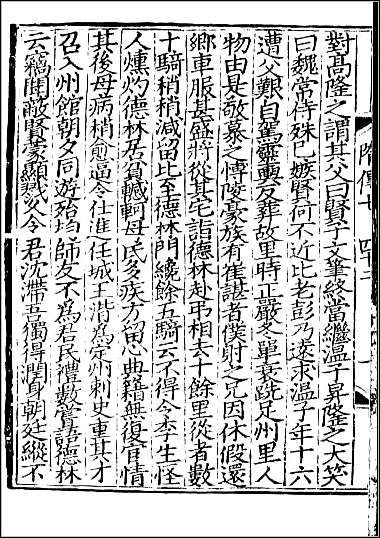 對高隆之謂其父曰賢子文筆終當繼溫子昇隆之大笑
曰魏常侍殊巳嫉賢何不近比老彭乃遠求溫子年十六
遭父艱自駕靈輿反葬故里時正嚴冬單衰跣足州里人
物由是敬慕之博陵豪族有崔諶者僕射之兄因休假還
鄉車服甚盛將從其宅詣德林赴弔相去十餘里從者數
十騎稍稍減留比至德林門纔餘五騎云不得令李生怪
人燻灼德林居貧轗軻母氏多疾方留心典籍無復宦情
其後母病稍愈逼令仕進任城王湝爲定州刺史重其才
召入州館朝夕同遊殆均師友不爲君民禮數嘗語德林
云竊聞蔽賢蒙顯戮久令君沈滯吾獨得潤身朝廷縱不